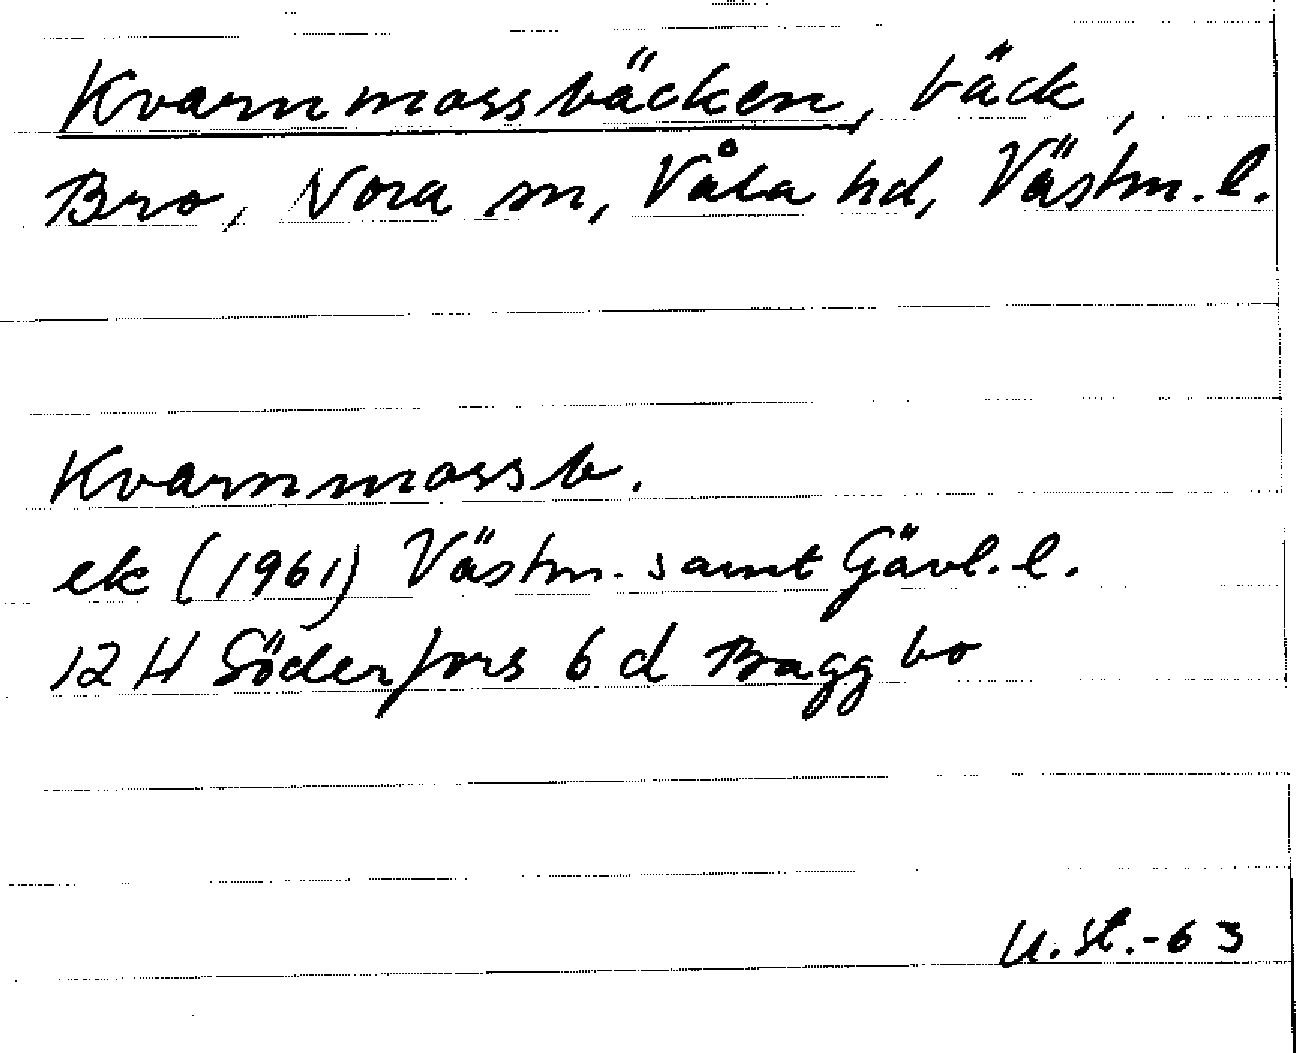 Kvarnmossbäcken, bäck,
Bro, Nora sn, Våla hd, Västm. l.
Kvarnmossb.
ek (1961) Västm. samt Gävl. l.
12 H Söderfors 6 d Baggbo
U. St. -63